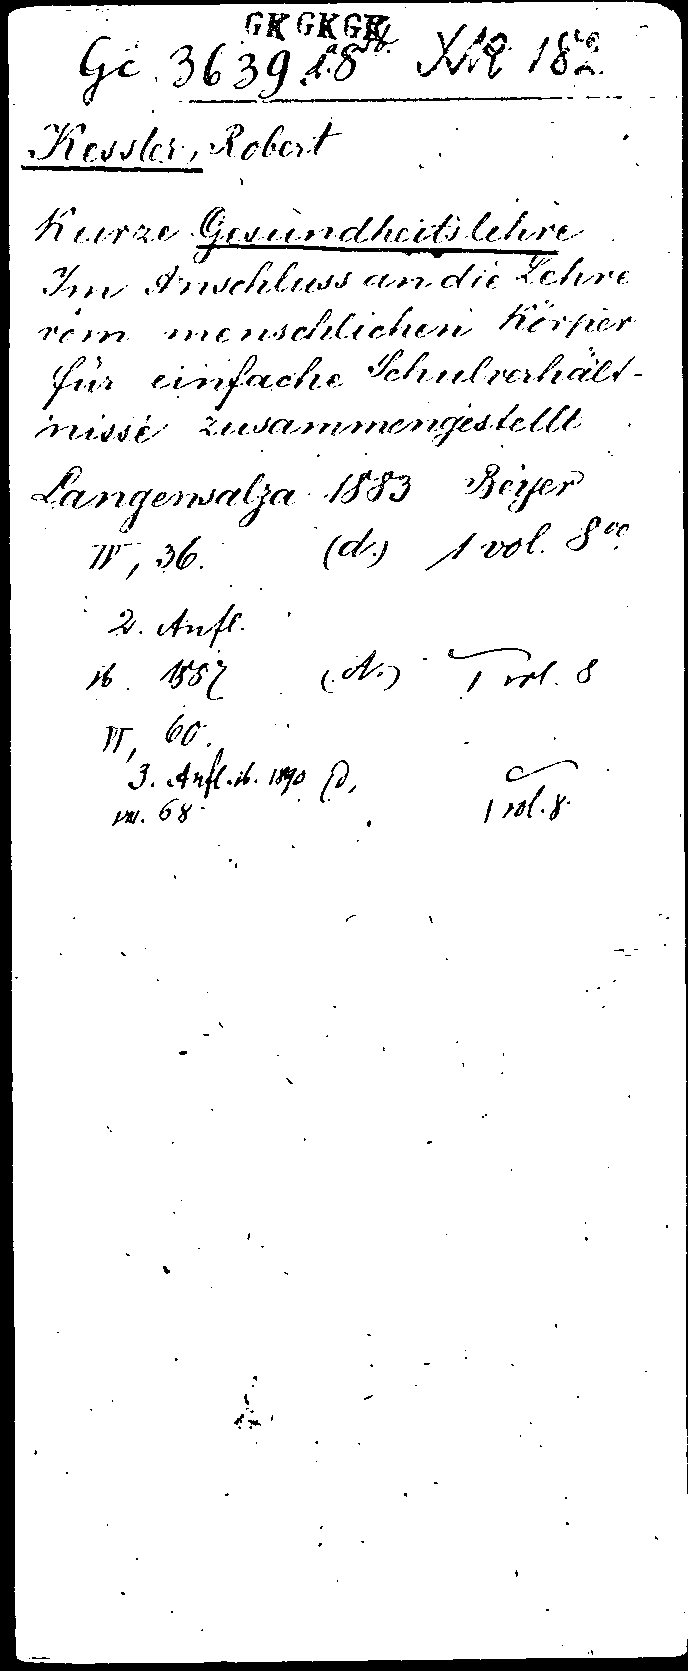 GK GK GK
Gc 3639 18 182
Kessler, Robert
Kurze Gesundheitslehre
Im Anschluss an die Lehre
vom menschlichen Körper
für einfache Schulverhält-
nisse zusammengestellt
Langensalza 1883 Beyer
IV, 36. (d.) 1 vol. 8vo
2. Aufl.
ib. 1887 (d.) 1 vol. 8
VI, 60.
3. Aufl. ib. 1890 (d.
VIII. 68 1 vol. 8.